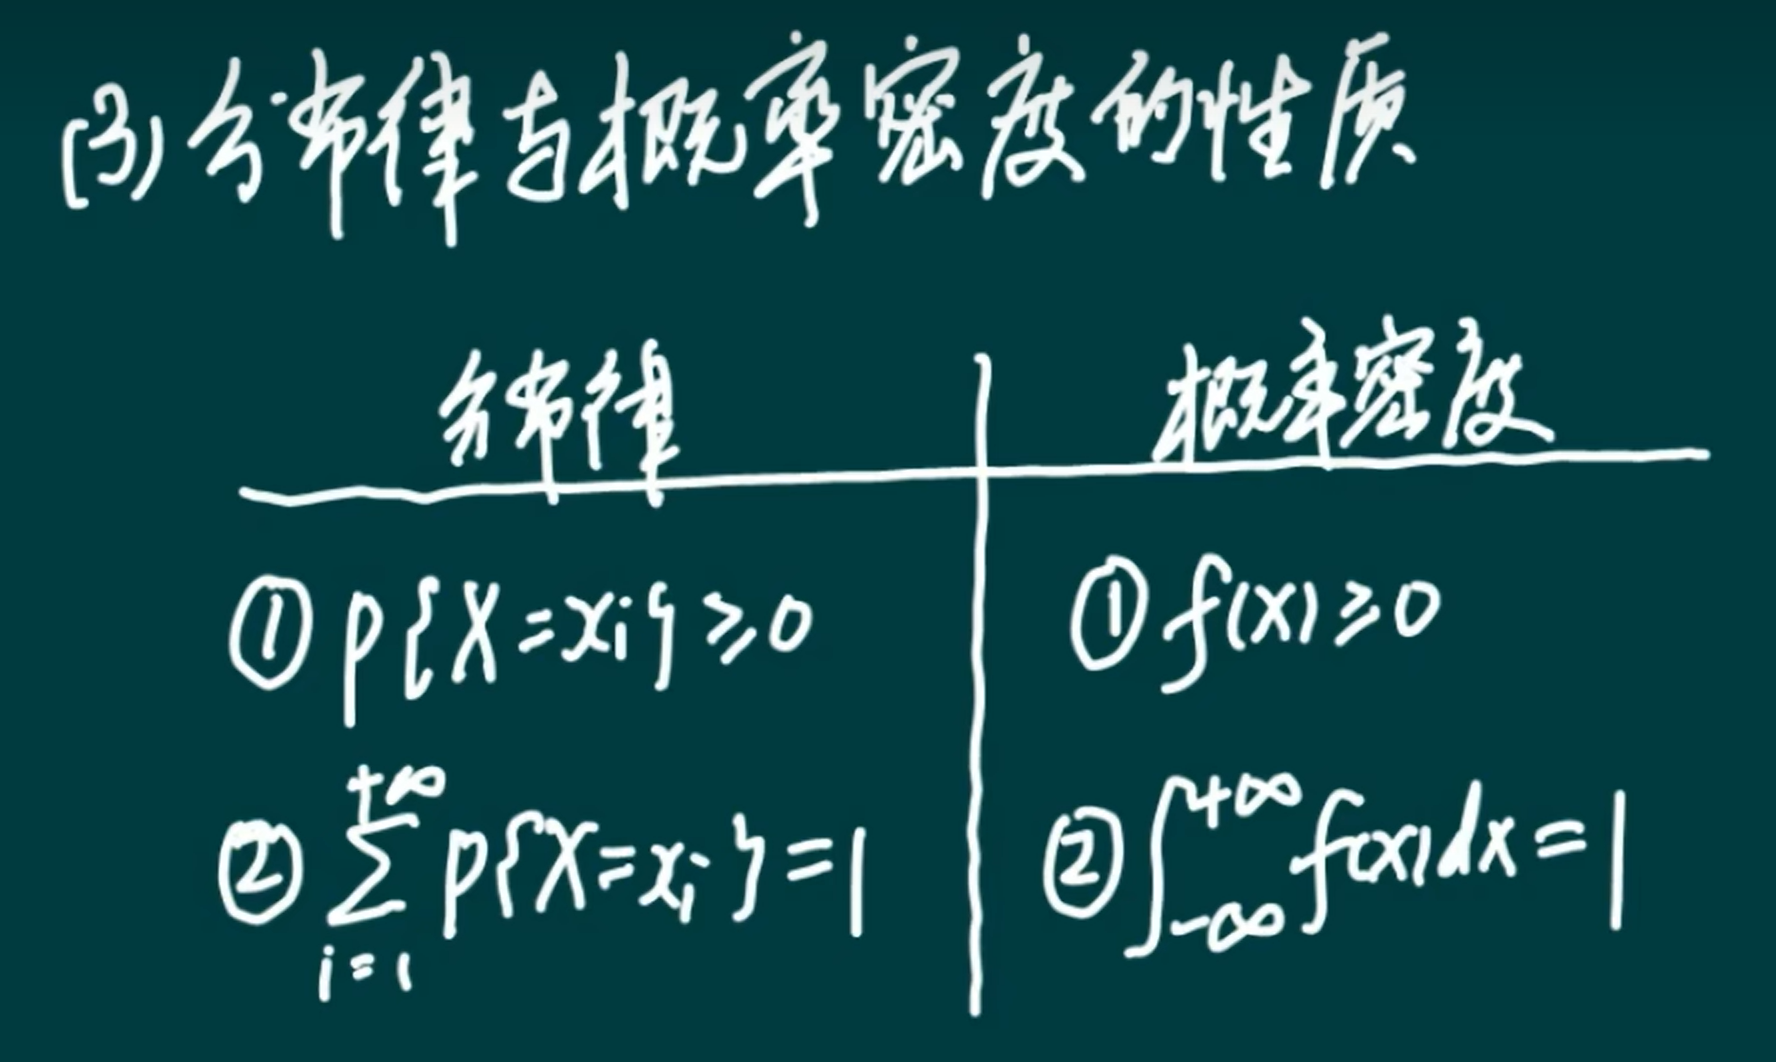 (3)分布律与概率密度的性质
分布律 概率密度
① p{X=xi}≥0 ① f(x)≥0
② ∑_{i=1}^{+∞} p{X=xi}=1 ② ∫_{-∞}^{+∞} f(x)dx=1